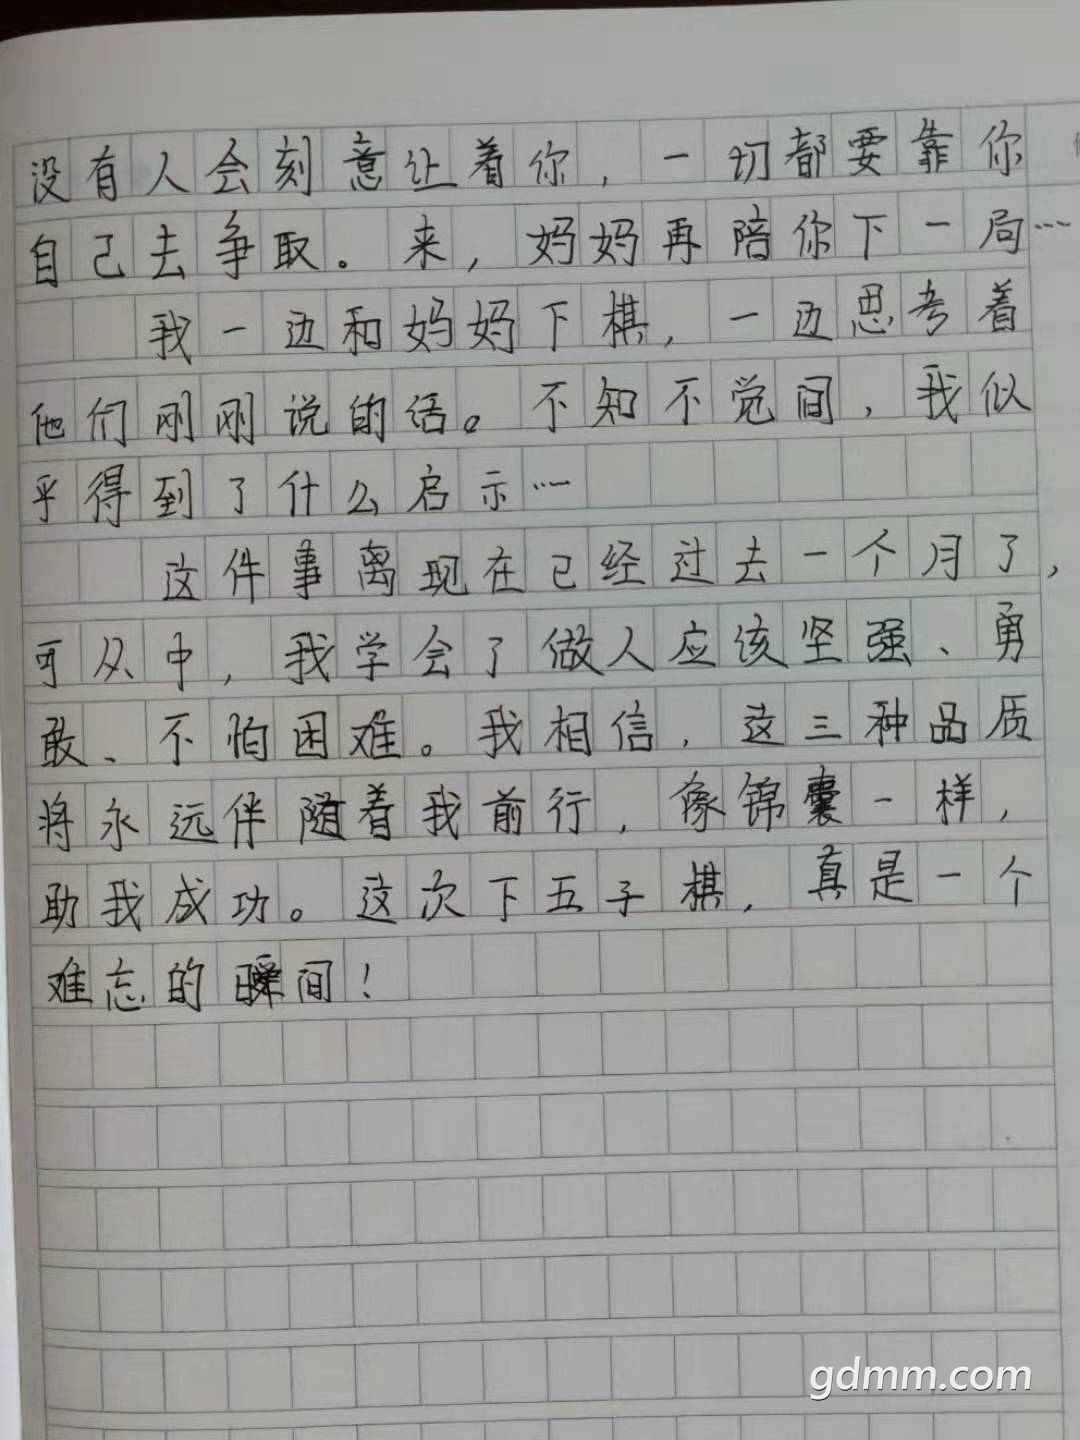 没有人会刻意让着你，一切都要靠你
自己去争取。来，妈妈再陪你下一局…
我一边和妈妈下棋，一边思考着
他们刚刚说的话。不知不觉间，我似
乎得到了什么启示…
这件事离现在已经过去一个月了，
可从中，我学会了做人应该坚强、勇
敢、不怕困难。我相信，这三种品质
将永远伴随着我前行，像锦囊一样，
助我成功。这次下五子棋，真是一个
难忘的瞬间！
gdmm.com